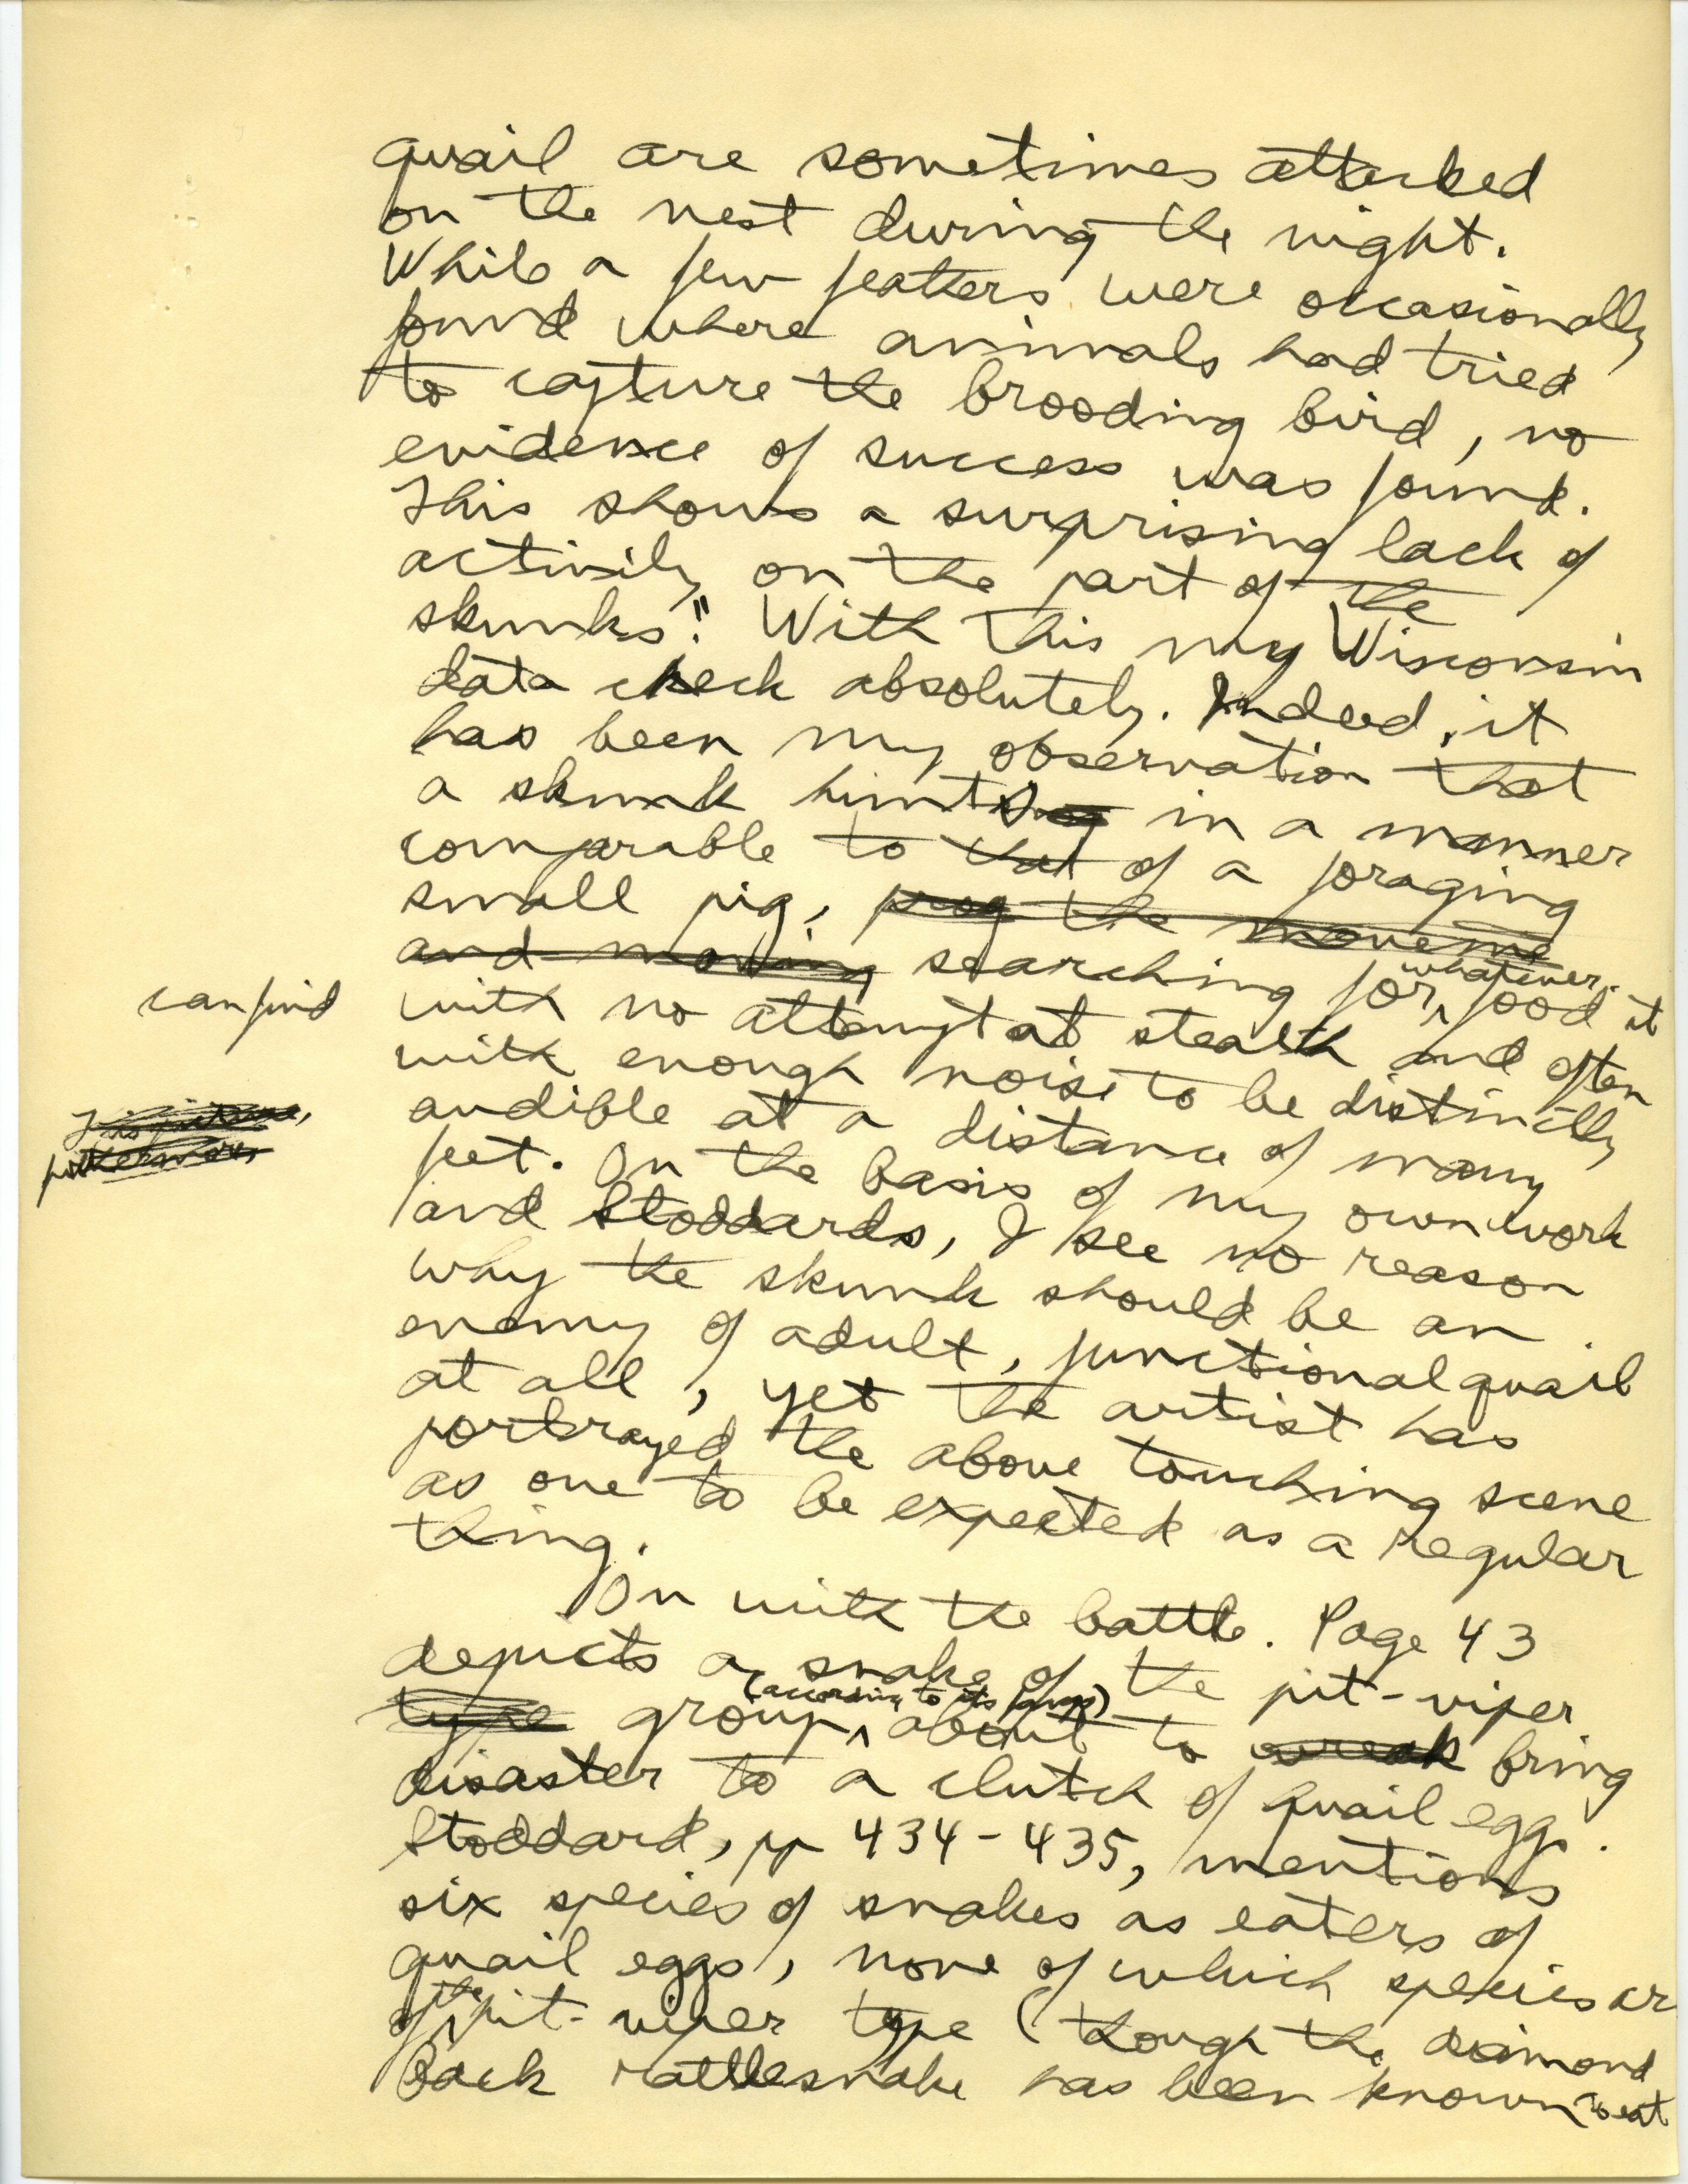 quail are sometimes attacked
on the nest during the night.
While a few feathers were occasionally
found where animals had tried
to capture the brooding bird, no
evidence of success was found.
This shows a surprising lack of
activity on the part of the
skunks." With this my Wisconsin
data check absolutely. Indeed, it
has been my observation that
a skunk hunts in a manner
comparable to that of a foraging
small pig, prog the moveme
and moving searching for whatever food it
can find with no attempt at stealth and often
with enough noise to be distinctly
audible at a distance of many
feet. On the basis of my own work
and Stoddards, I see no reason
why the skunk should be an
enemy of adult, functional quail
at all, yet the artist has
portrayed the above touching scene
as one to be expected as a regular
thing.
On with the battle. Page 43
depicts a snake of the pit-viper
type group (according to its fangs) about to wreak bring
disaster to a clutch of quail eggs.
Stoddard, pp 434-435, mentions
six species of snakes as eaters of
quail eggs, none of which species ar
of the pit-viper type (though the diamond
back rattlesnake has been known to eat